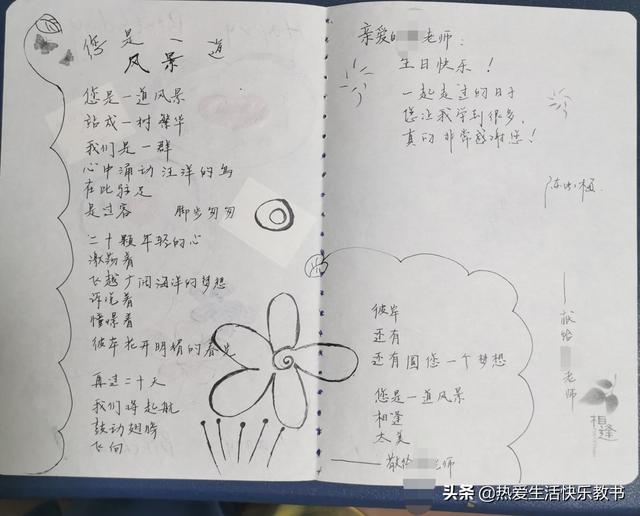 您是一道
风景
您是一道风景
站成一树繁华
我们是一群
心中涌动汪洋的鸟
在此驻足
是过客 脚步匆匆
二十颗年轻的心
激荡着
飞越广阔海洋的梦想
诉说着
憧憬着
彼岸花开明媚的春光
再过二十天
我们将起航
鼓动翅膀
飞向
亲爱的 老师：
生日快乐！
一起走过的日子
您让我学到很多，
真的非常感谢您！
彼岸
还有
还有圆您一个梦想
您是一道风景
相逢
太美
——献给 老师
——献给 老师
相逢
头条 @热爱生活快乐教书